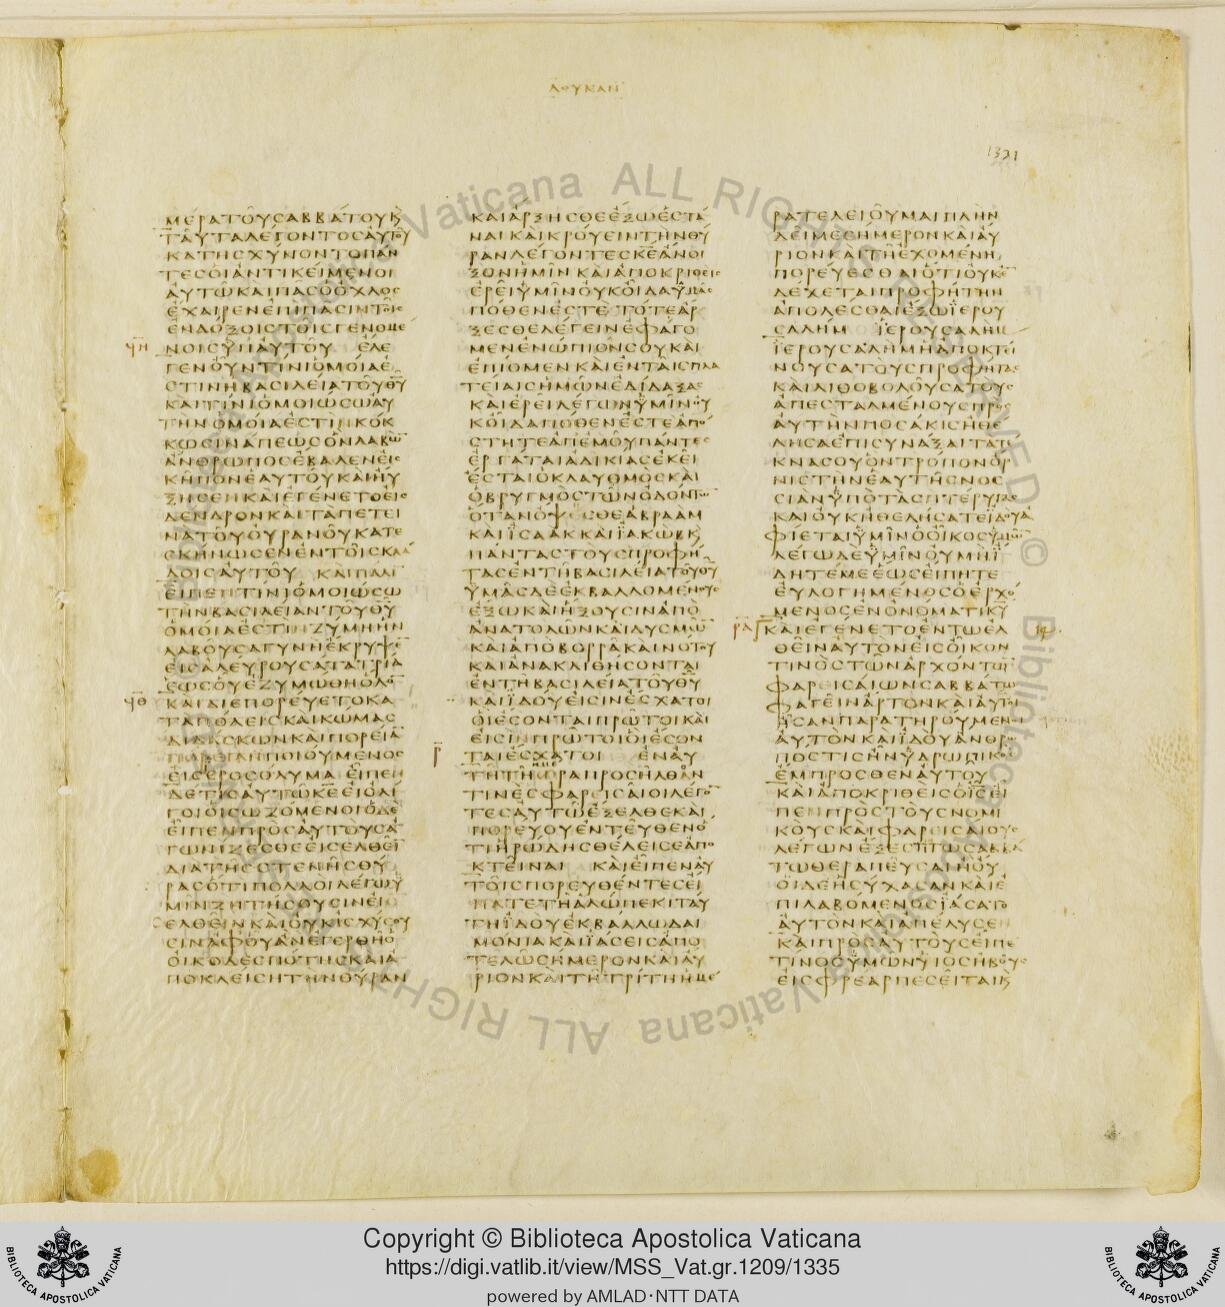 ΛΟΥΚΑΝ
1321
ΜΕΡΑΤΟΥϹΑΒΒΑΤΟΥΚ
ΤΑΥΤΑΛΕΓΟΝΤΟϹΑΥΤΟΥ
ΚΑΤΗϹΧΥΝΟΝΤΟΠΑΝ
ΤΕϹΟΙΑΝΤΙΚΕΙΜΕΝΟΙ
ΑΥΤΩΚΑΙΠΑϹΟΟΧΛΟϹ
ΕΧΑΙΡΕΝΕΠΙΠΑϹΙΝΤΟΙϹ
ΕΝΔΟΞΟΙϹΤΟΙϹΓΕΝΟΜΕ
ϞΗ ΝΟΙϹΥΠΑΥΤΟΥ ΕΛΕ
ΓΕΝΟΥΝΤΙΝΙΟΜΟΙΑΕ
ϹΤΙΝΗΒΑϹΙΛΕΙΑΤΟΥΘΥ
ΚΑΙΤΙΝΙΟΜΟΙΩϹΩΑΥ
ΤΗΝΟΜΟΙΑΕϹΤΙΝΚΟΚ
ΚΩϹΙΝΑΠΕΩϹΟΝΛΑΒΩ
ΑΝΘΡΩΠΟϹΕΒΑΛΕΝΕΙϹ
ΚΗΠΟΝΕΑΥΤΟΥΚΑΙΗΥ
ΞΗϹΕΝΚΑΙΕΓΕΝΕΤΟΕΙϹ
ΔΕΝΔΡΟΝΚΑΙΤΑΠΕΤΕΙ
ΝΑΤΟΥΟΥΡΑΝΟΥΚΑΤΕ
ϹΚΗΝΩϹΕΝΕΝΤΟΙϹΚΛΑ
ΔΟΙϹΑΥΤΟΥ ΚΑΙΠΑΛΙ
ΕΙΠΕΝΤΙΝΙΟΜΟΙΩϹΩ
ΤΗΝΒΑϹΙΛΕΙΑΝΤΟΥΘΥ
ΟΜΟΙΑΕϹΤΙΝΖΥΜΗΗΝ
ΛΑΒΟΥϹΑΓΥΝΗΕΚΡΥΨΕ
ΕΙϹΑΛΕΥΡΟΥϹΑΤΑΤΡΙΑ
ΕΩϹΟΥΕΖΥΜΩΘΗΟΛΟ
ϞΘ ΚΑΙΔΙΕΠΟΡΕΥΕΤΟΚΑ
ΤΑΠΟΛΕΙϹΚΑΙΚΩΜΑϹ
ΔΙΔΑϹΚΩΝΚΑΙΠΟΡΕΙΑ
ΠΟΙΟΥΜΕΝΟϹ
ΕΙϹΙΕΡΟϹΟΛΥΜΑ ΕΙΠΕΝ
ΔΕΤΙϹΑΥΤΩΚΕΕΙΟΛΙ
ΓΟΙΟΙϹΩΖΟΜΕΝΟΙΟΔΕ
ΕΙΠΕΝΠΡΟϹΑΥΤΟΥϹΑ
ΓΩΝΙΖΕϹΘΕΕΙϹΕΛΘΕΙ
ΔΙΑΤΗϹϹΤΕΝΗϹΘΥ
ΡΑϹΟΤΙΠΟΛΛΟΙΛΕΓΩΥ
ΜΙΝΖΗΤΗϹΟΥϹΙΝΕΙϹ
ΕΛΘΕΙΝΚΑΙΟΥΚΙϹΧΥϹΟΥ
ϹΙΝΑΦΟΥΑΝΕΓΕΡΘΗΟ
ΟΙΚΟΔΕϹΠΟΤΗϹΚΑΙΑ
ΠΟΚΛΕΙϹΗΤΗΝΘΥΡΑΝ
ΚΑΙΑΡΞΗϹΘΕΕΞΩΕϹΤΑ
ΝΑΙΚΑΙΚΡΟΥΕΙΝΤΗΝΘΥ
ΡΑΝΛΕΓΟΝΤΕϹΚΕΑΝΟΙ
ΞΟΝΗΜΙΝΚΑΙΑΠΟΚΡΙΘΕΙϹ
ΕΡΕΙΥΜΙΝΟΥΚΟΙΔΑΥΜΑϹ
ΠΟΘΕΝΕϹΤΕ ΤΟΤΕΑΡ
ΞΕϹΘΕΛΕΓΕΙΝΕΦΑΓΟ
ΜΕΝΕΝΩΠΙΟΝϹΟΥΚΑΙ
ΕΠΙΟΜΕΝΚΑΙΕΝΤΑΙϹΠΛΑ
ΤΕΙΑΙϹΗΜΩΝΕΔΙΔΑΞΑϹ
ΚΑΙΕΡΕΙΛΕΓΩΝΥΜΙΝΟΥ
ΚΟΙΔΑΠΟΘΕΝΕϹΤΕΑΠΟ
ϹΤΗΤΕΑΠΕΜΟΥΠΑΝΤΕϹ
ΕΡΓΑΤΑΙΑΔΙΚΙΑϹΕΚΕΙ
ΕϹΤΑΙΟΚΛΑΥΘΜΟϹΚΑΙ
ΟΒΡΥΓΜΟϹΤΩΝΟΔΟΝΤΩ
ΟΤΑΝΟΨΕϹΘΕΑΒΡΑΑΜ
ΚΑΙΙϹΑΑΚΚΑΙΙΑΚΩΒΚ
ΠΑΝΤΑϹΤΟΥϹΠΡΟΦΗ
ΤΑϹΕΝΤΗΒΑϹΙΛΕΙΑΤΟΥΘΥ
ΥΜΑϹΔΕΕΚΒΑΛΛΟΜΕΝΟΥϹ
ΕΞΩΚΑΙΗΞΟΥϹΙΝΑΠΟ
ΑΝΑΤΟΛΩΝΚΑΙΔΥϹΜΩ
ΚΑΙΑΠΟΒΟΡΡΑΚΑΙΝΟΤΟΥ
ΚΑΙΑΝΑΚΛΙΘΗϹΟΝΤΑΙ
ΕΝΤΗΒΑϹΙΛΕΙΑΤΟΥΘΥ
ΚΑΙΙΔΟΥΕΙϹΙΝΕϹΧΑΤΟΙ
ΟΙΕϹΟΝΤΑΙΠΡΩΤΟΙΚΑΙ
ΕΙϹΙΝΠΡΩΤΟΙΟΙΕϹΟΝ
Ρ ΤΑΙΕϹΧΑΤΟΙ ΕΝΑΥ
ΤΗΤΗΩΡΑΠΡΟϹΗΛΘΑΝ
ΤΙΝΕϹΦΑΡΕΙϹΑΙΟΙΛΕΓΟ
ΤΕϹΑΥΤΩΕΞΕΛΘΕΚΑΙ
ΠΟΡΕΥΟΥΕΝΤΕΥΘΕΝΟ
ΤΙΗΡΩΔΗϹΘΕΛΕΙϹΕΑΠΟ
ΚΤΕΙΝΑΙ ΚΑΙΕΙΠΕΝΑΥ
ΤΟΙϹΠΟΡΕΥΘΕΝΤΕϹΕΙ
ΠΑΤΕΤΗΑΛΩΠΕΚΙΤΑΥ
ΤΗΙΔΟΥΕΚΒΑΛΛΩΔΑΙ
ΜΟΝΙΑΚΑΙΙΑϹΕΙϹΑΠΟ
ΤΕΛΩϹΗΜΕΡΟΝΚΑΙΑΥ
ΡΙΟΝΚΑΙΤΗΤΡΙΤΗΗΜΕ
ΡΑΤΕΛΕΙΟΥΜΑΙΠΛΗΝ
ΔΕΙΜΕϹΗΜΕΡΟΝΚΑΙΑΥ
ΡΙΟΝΚΑΙΤΗΕΧΟΜΕΝΗ
ΠΟΡΕΥΕϹΘΑΙΟΤΙΟΥΚΕ
ΔΕΧΕΤΑΙΠΡΟΦΗΤΗΝ
ΑΠΟΛΕϹΘΑΙΕΞΩΙΕΡΟΥ
ϹΑΛΗΜ ΙΕΡΟΥϹΑΛΗΜ
ΙΕΡΟΥϹΑΛΗΜΗΑΠΟΚΤΕΙ
ΝΟΥϹΑΤΟΥϹΠΡΟΦΗΤΑϹ
ΚΑΙΛΙΘΟΒΟΛΟΥϹΑΤΟΥϹ
ΑΠΕϹΤΑΛΜΕΝΟΥϹΠΡΟϹ
ΑΥΤΗΝΠΟϹΑΚΙϹΗΘΕ
ΛΗϹΑΕΠΙϹΥΝΑΞΑΙΤΑΤΕ
ΚΝΑϹΟΥΟΝΤΡΟΠΟΝΟΡ
ΝΙϹΤΗΝΕΑΥΤΗϹΝΟϹ
ϹΙΑΝΥΠΟΤΑϹΠΤΕΡΥΓΑϹ
ΚΑΙΟΥΚΗΘΕΛΗϹΑΤΕΙΔΟΥΑ
ΦΙΕΤΑΙΥΜΙΝΟΟΙΚΟϹΥΜΩ
ΛΕΓΩΔΕΥΜΙΝΟΥΜΗΙ
ΔΗΤΕΜΕΕΩϹΕΙΠΗΤΕ
ΕΥΛΟΓΗΜΕΝΟϹΟΕΡΧΟ
ΜΕΝΟϹΕΝΟΝΟΜΑΤΙΚΥ
ΡΑ ΚΑΙΕΓΕΝΕΤΟΕΝΤΩΕΛ
ΘΕΙΝΑΥΤΟΝΕΙϹΟΙΚΟΝ
ΤΙΝΟϹΤΩΝΑΡΧΟΝΤΩ
ΦΑΡΕΙϹΑΙΩΝϹΑΒΒΑΤΩ
ΦΑΓΕΙΝΑΡΤΟΝΚΑΙΑΥΤΟΙ
ΗϹΑΝΠΑΡΑΤΗΡΟΥΜΕΝΟΙ
ΑΥΤΟΝΚΑΙΙΔΟΥΑΝΘΡΩ
ΠΟϹΤΙϹΗΝΥΔΡΩΠΙΚΟϹ
ΕΜΠΡΟϹΘΕΝΑΥΤΟΥ
ΚΑΙΑΠΟΚΡΙΘΕΙϹΟΙϹΕΙ
ΠΕΝΠΡΟϹΤΟΥϹΝΟΜΙ
ΚΟΥϹΚΑΙΦΑΡΕΙϹΑΙΟΥϹ
ΛΕΓΩΝΕΞΕϹΤΙΤΩϹΑΒΒΑ
ΤΩΘΕΡΑΠΕΥϹΑΙΗΟΥ
ΟΙΔΕΗϹΥΧΑϹΑΝΚΑΙΕ
ΠΙΛΑΒΟΜΕΝΟϹΙΑϹΑΤΟ
ΑΥΤΟΝΚΑΙΑΠΕΛΥϹΕΝ
ΚΑΙΠΡΟϹΑΥΤΟΥϹΕΙΠΕ
ΤΙΝΟϹΥΜΩΝΥΙΟϹΗΒΟΥϹ
ΕΙϹΦΡΕΑΡΠΕϹΕΙΤΑΙΚ
Vaticana ALL RIGHTS RESERVED © Biblioteca Vaticana ALL RIGHT
Copyright © Biblioteca Apostolica Vaticana
https://digi.vatlib.it/view/MSS_Vat.gr.1209/1335
powered by AMLAD·NTT DATA
BIBLIOTECA APOSTOLICA VATICANA
BIBLIOTECA APOSTOLICA VATICANA